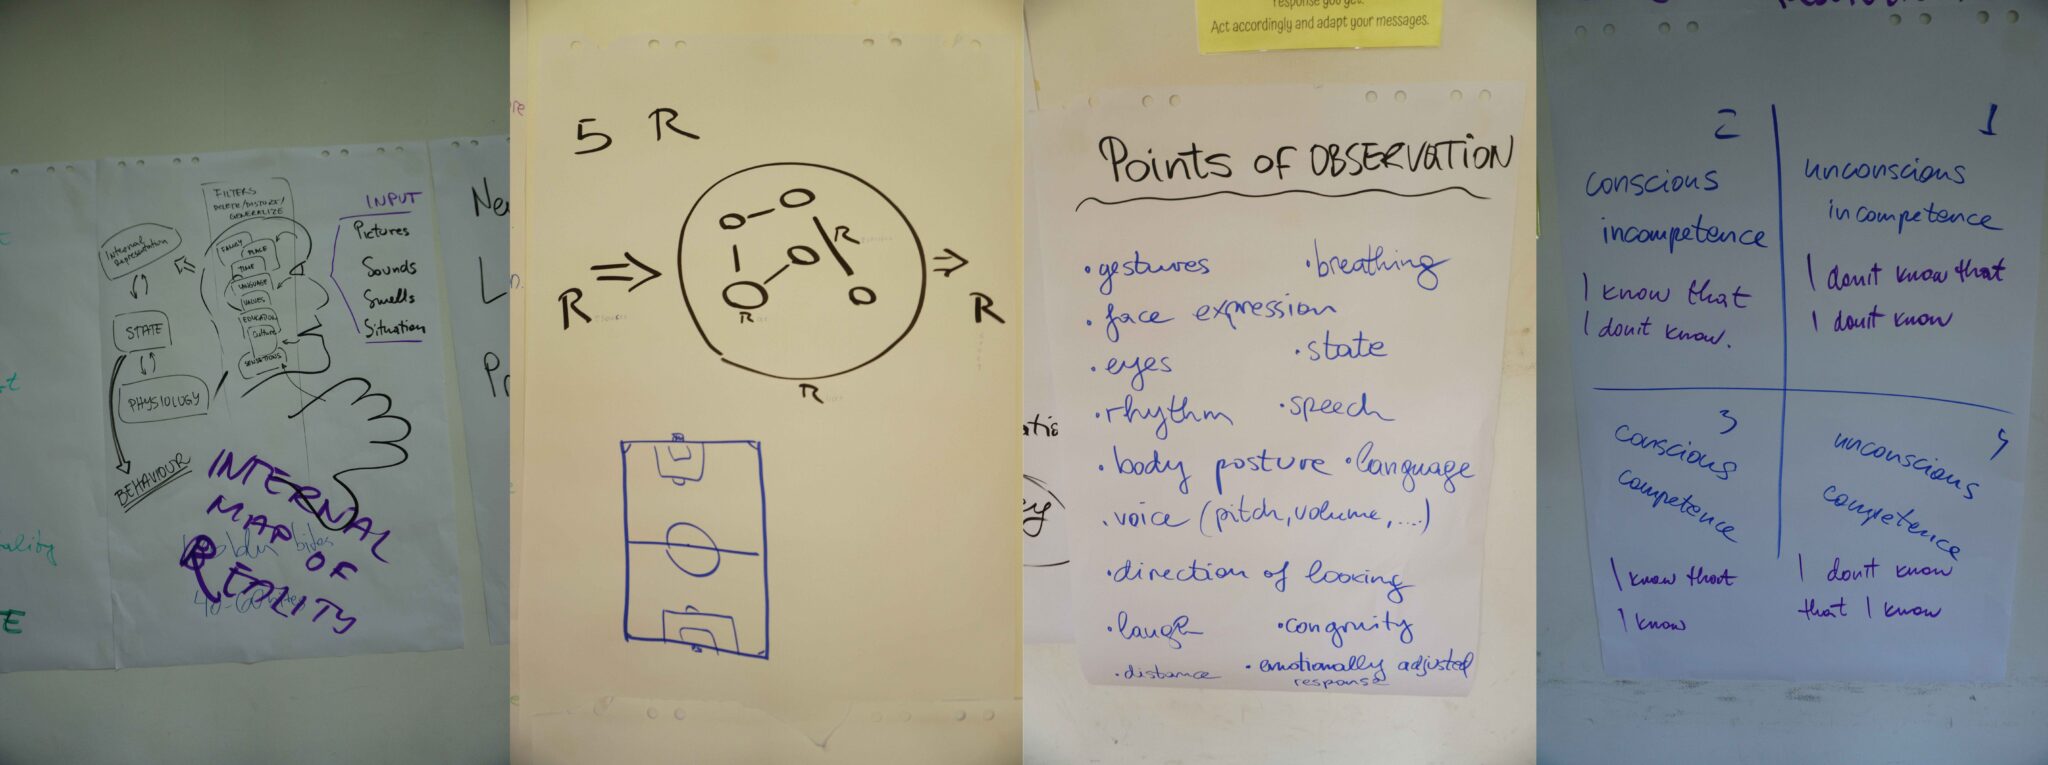 FILTERS
DELETE/DISTORT/
GENERALIZE
INPUT
Pictures
Sounds
Smells
Situation
Internal
Representation
STATE
PHYSIOLOGY
BEHAVIOUR
FAMILY
PLACE
TIME
LANGUAGE
VALUES
EDUCATION
Culture
SENSATIONS
INTERNAL
MAP OF
REALITY
E
5 R
R
R
R
R
R
response you get.
Act accordingly and adapt your messages.
Points of OBSERVATION
• gestures
• breathing
• face expression
• eyes
• state
• rhythm
• speech
• body posture • language
• voice (pitch, volume, ....)
• direction of looking
• laugh
• congruity
• distance
• emotionally adjusted
response
2
conscious
incompetence
I know that
I don't know.
1
unconscious
incompetence
I don't know that
I don't know
3
conscious
competence
I know that
I know
4
unconscious
competence
I don't know
that I know